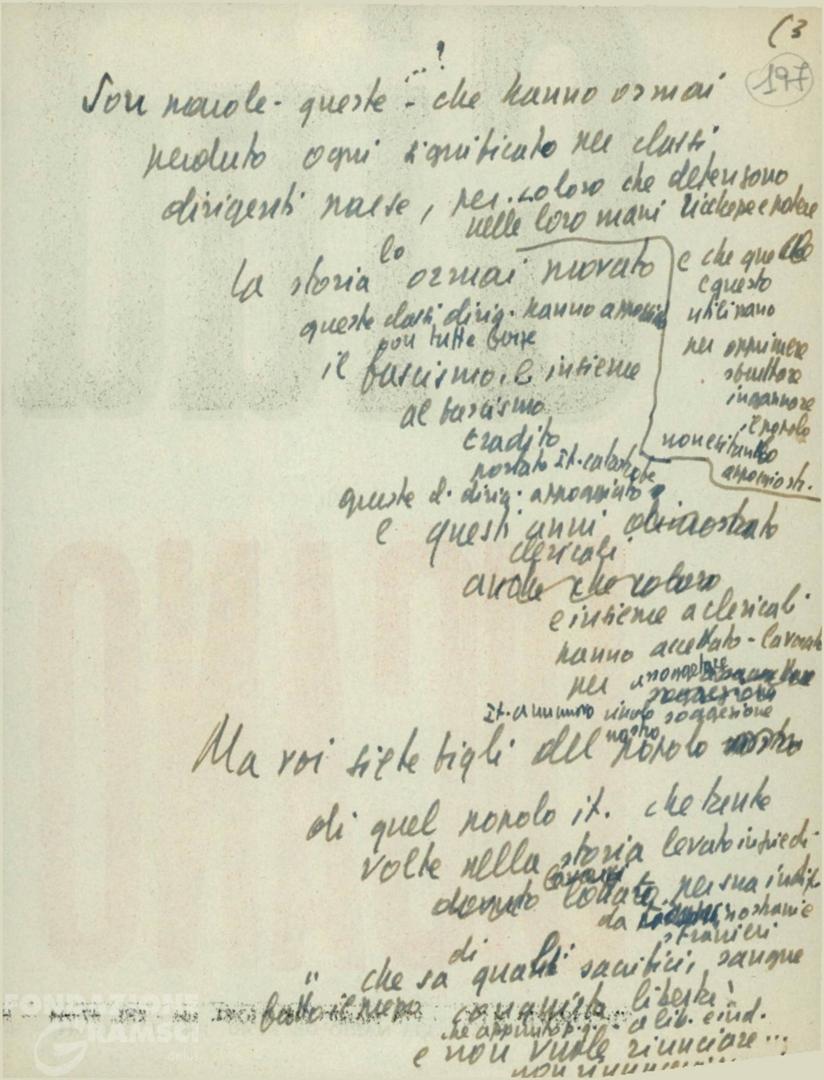 (3
197
Son parole - queste - che hanno ormai
perduto ogni significato per classi
dirigenti paese, per coloro che detengono
nelle loro mani ricchezze e potere
e che quelle
e questo
utilizzano
per opprimere
sfruttare
ingannare
il popolo
non esitando
La storia lo ormai provato
queste classi dirig. hanno
con tutte forze
il fascismo, e insieme
al fascismo
tradito
portato It. catastrofe
queste cl. dirig. appoggiato
e questi anni dimostrato
clericali
anche che coloro
e insieme a clericali
hanno accettato - lavorato
per assoggettare
soggezione
It. a un nuovo vincolo soggezione
Ma voi siete figli del popolo nostro
di quel popolo it. che tante
volte nella storia levato in piedi -
dovuto lottare per sua indip.
da
stranieri
che sa di quanti sacrifici, sangue
fatto il prezzo conquista libertà
che appunto p. q. - a lib. e ind.
e non vuole rinunciare...
FONDAZIONE
GRAMSCI